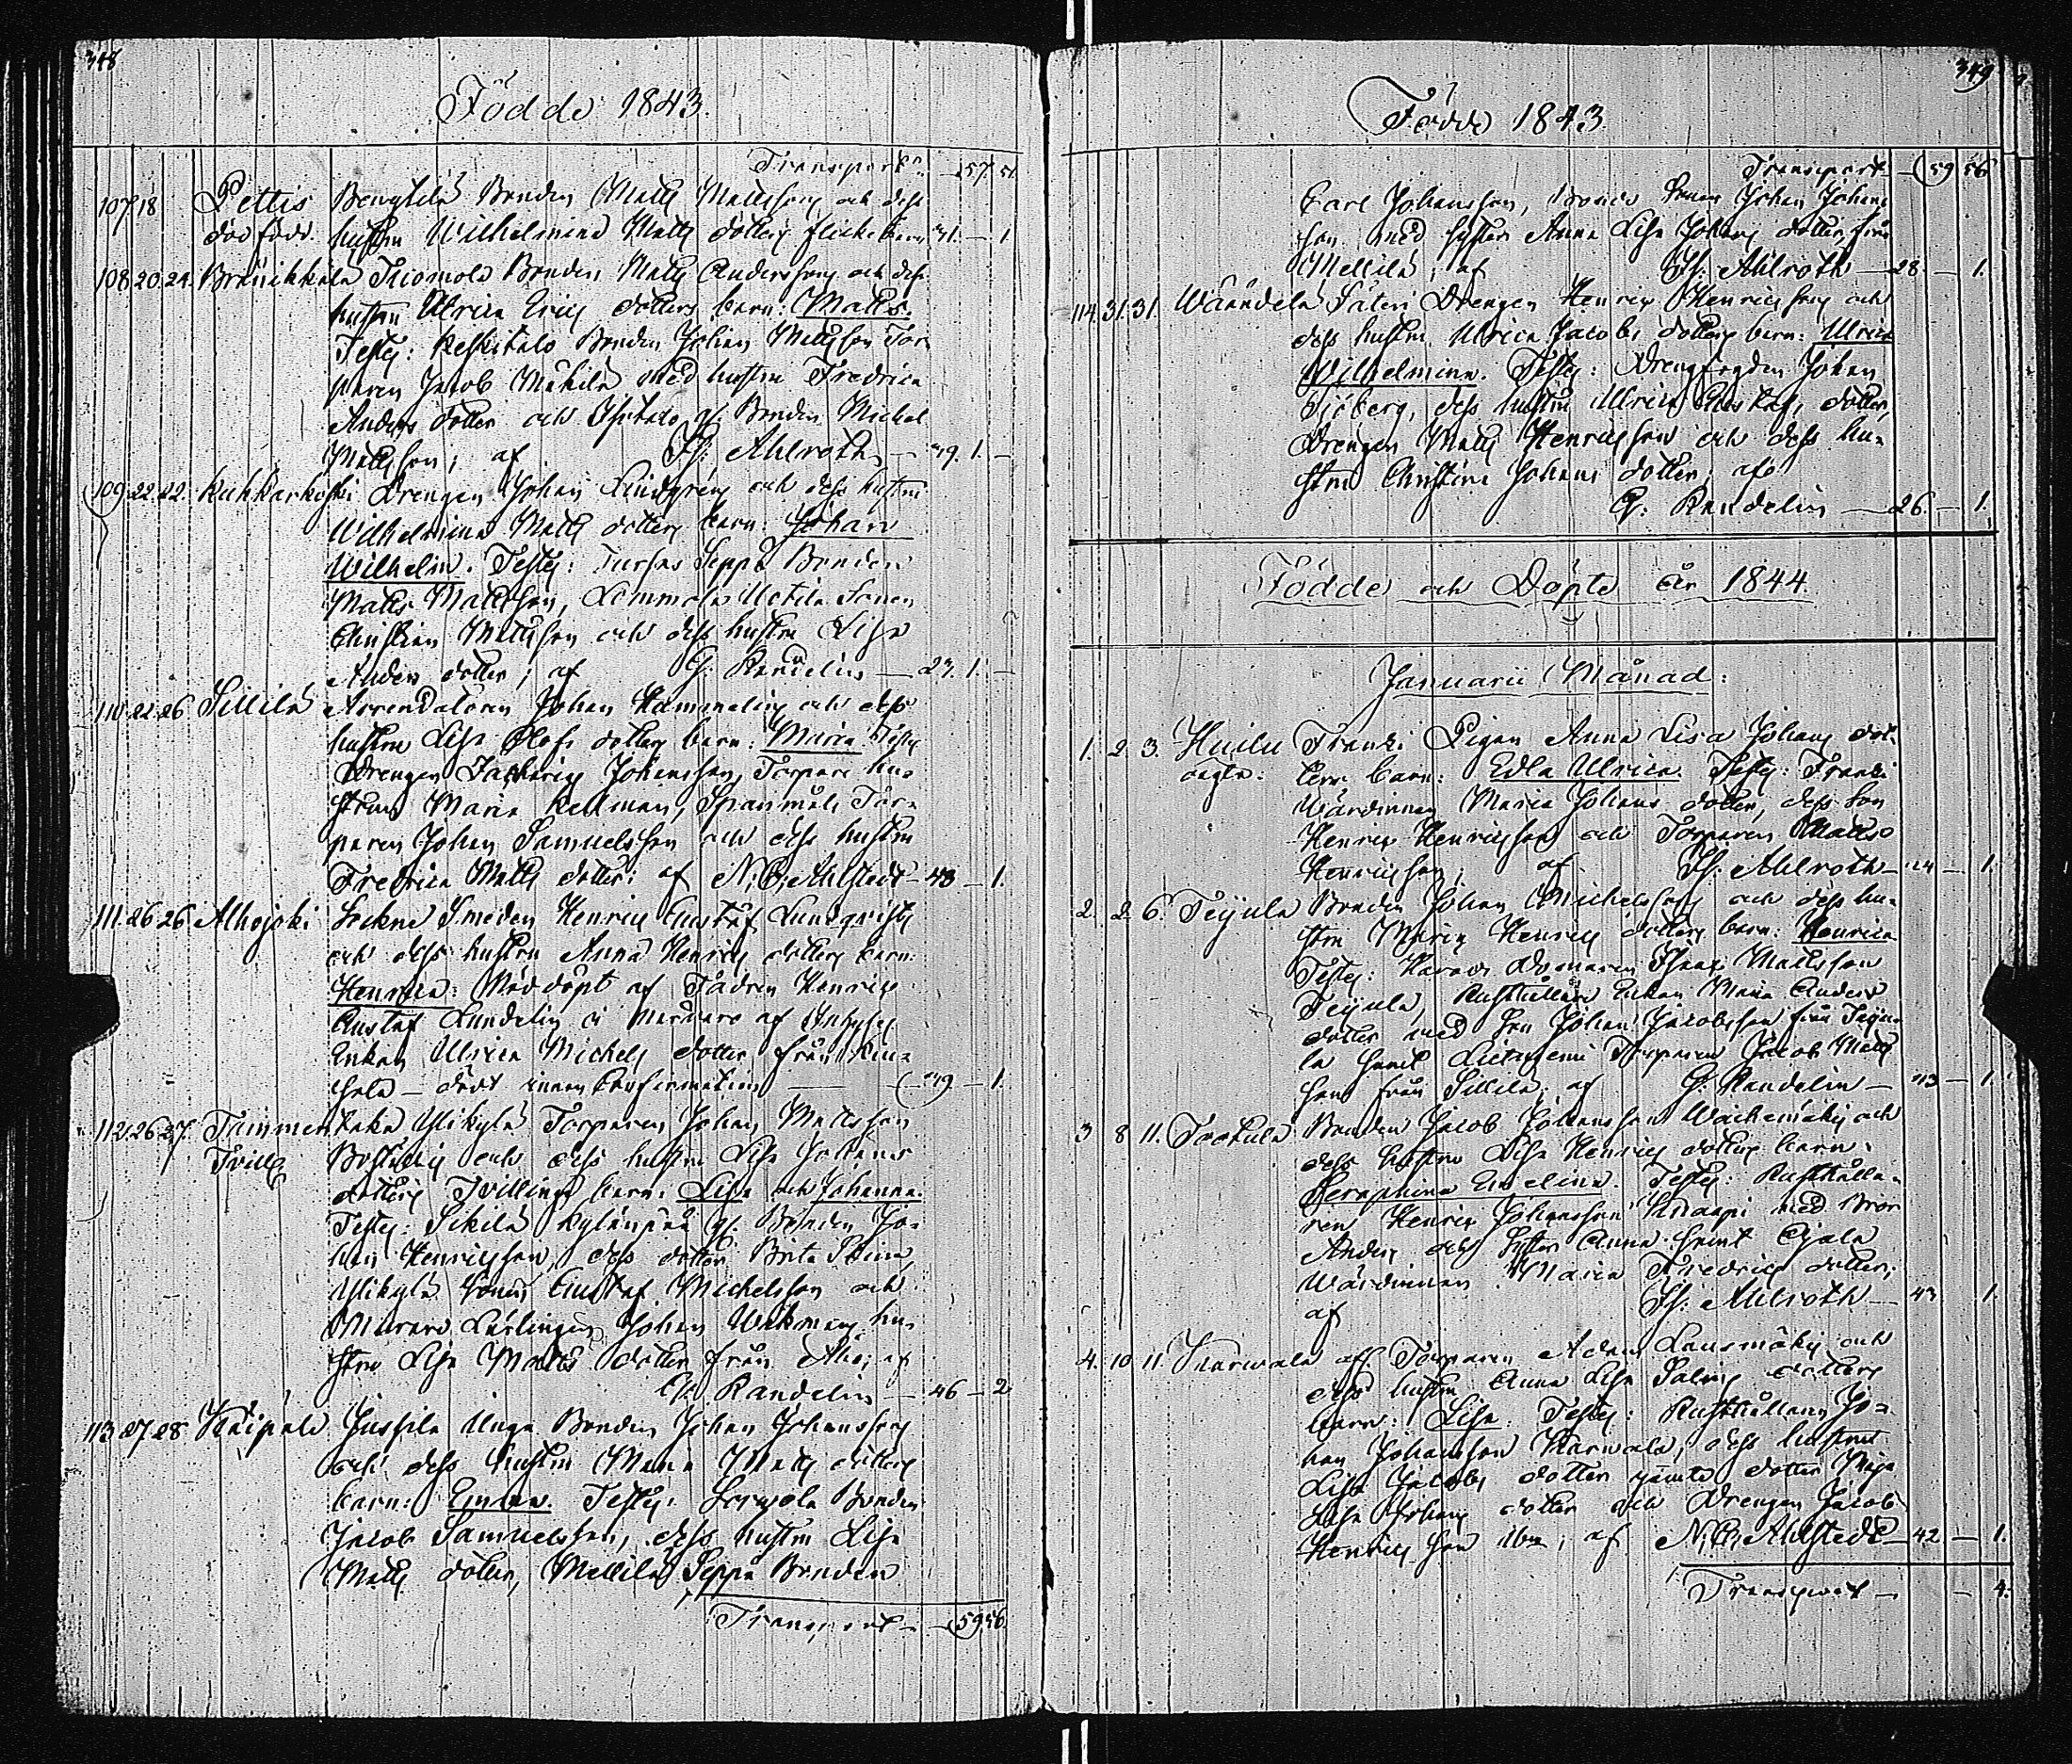 348
Födde 1843.
Transport 57. 51.
107. 18 Pettis Benylilä Bonden Matts Mattsson och dess
död född. hustru Wilhelmina Matts dotters flicke barn 31. — 1
108. 20. 24. Bränikkala Tuomola Bonden Matts Andersson och dess
hustru Ulrica Erics dotters barn: Matts.
Testes: Keskitalo Bonden Johan Mattsson Tor-
paren Jacob Mäkilä med hustru Fredrica
Anders dotter och Isotalo Bonden Michel
Mattsson; af Is: Ahlroth — 29. 1. —
109. 22. 22. Kuhkarkoski Drengen Johan Lindgren och dess hustru
Wilhelmina Matts dotters barn: Johan
Wilhelm. Testes: Seppä Bonden
Matts Mattsson, Lemmola Sonen
Christian Mattsson och dess hustru Lisa
Anders dotter; af G: Randelin — 27. 1. —
110. 22. 26 Sillilä Arrendatoren Johan Hammelin och dess
hustru Lisa Olofs dotters barn: Maria Testes
Drengen Zacharias Johansson, Torpare hu-
strun Maria Kellman, Spannmåls Tor-
paren Johan Samuelsson och dess hustru
Fredrica Matts dotter; af N. C. Ahlstedt — 43 — 1.
111. 26 26 Alhojoki Sockne Smeden Henric Gustaf Lundqvists
och dess hustru Anna Henrics dotters barn:
Henrica: Nöddöpt af Fadren Henric
Gustaf Lundelin i närvaro af Inhyses
Enkan Ulrica Michels dotter från
— dödt innan Confirmation — 29 — 1.
112. 26 27. Tammentaka Ylikylä Torparen Johan Mattsson
Tvill och dess hustru Lisa Johans
dotters Tvillinge barn: Lisa och Johanna.
Testes: Sikilä Kylänpää Bonden Jo-
han Henricsson, dess dotter Brita Stina,
Ylikylä Sonen Gustaf Michelsson och
Murare Lärlingen Johan Wekman hu-
stru Lisa Matts dotter från Åbo; af
G: Randelin — 46 — 2
113 27 28 Kaipola Jussila Unga Bonden Johan Johansson
och dess hustru Maria Matts dotters
barn: Emma. Testes: Bonden
Jacob Samuelsson, dess hustru Lisa
Matts dotter, Mellilä Seppä Bonden
Transport — 59. 56.
349
Födde 1843.
Transport — 59 56
Carl Johansson, Bonde Sonen Johan Johans
son med syster Anna Lisa Johans dotter från
Mellilä; af Is: Ahlroth — 28. — 1.
114. 31. 31. Wäändelä Säteri Drengen Henric Henricsson och
dess hustru Ulrica Jacobs dotters barn: Ulrica
Wilhelmina. Testes: Drengfogden Johan
Sjöberg, dess hustru Ulrica Gustafs dotter,
Drengen Matts Henricsson och dess hu-
stru Christina Johans dotter; af
G: Randelin — 26. — 1.
Födde och Döpte år 1844.
Januarii Månad:
1. 2. 3. Huilu Franki Pigan Anna Lisa Johans dot-
oägta: ters barn: Edla Ulrica. Testes: Franki
Wärdinnan Maria Johans dotter, dess Son
Henric Henricsson och Torparen Matts
Henricsson; af Is: Ahlroth — 24 — 1.
2. 2. 6. Teijula Bonden Johan Michelsson och dess hu-
stru Maria Henrics dotters barn: Henrica
Testes: Mattsson
Teijula, Rusthållare Enkan Maria Anders
dotter med Son Johan Jacobsson från Teiju-
la samt Lietzeni Torparen Jacob Matts
son från Sillilä; af G: Randelin — 43 — 1.
3 8 11. Tootula Bonden Jacob Johansson och
dess hustru Lisa Henrics dotters barn:
Seraphina Evelina. Testes: Rusthålla-
ren Henric Johansson Knaapi med Bror
Anders och Syster Anna samt Ojala
Wärdinnan Maria Fredrics dotter;
af Is: Ahlroth — 43 1.
4. 10 11. Karwala Torparen Adam Lausmäki och
dess hustru Anna Lisa Salins dotters
barn: Lisa. Testes: Rusthållaren Jo-
han Johansson Karwala, dess hustru
Lisa Jacobs dotter jämte dotter Maja
Lisa Johans dotter och Drengen Jacob
Henricsson ibm; af N. C. Ahlstedt — 42 — 1.
Transport — — 4.